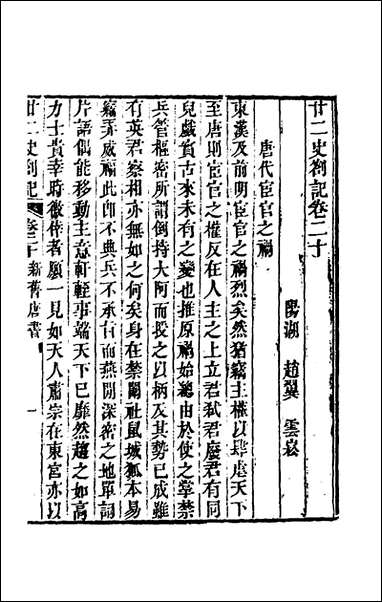 廿二史劄記卷二十
陽湖 趙翼 雲崧
唐代宦官之禍
東漢及前明宦官之禍烈矣然猶竊主權以肆虐天下
至唐則宦官之權反在人主之上立君弒君廢君有同
兒戲實古來未有之變也推原禍始總由於使之掌禁
兵管樞密所謂倒持大阿而授之以柄及其勢已成雖
有英君察相亦無如之何矣身在禁闈社鼠城狐本易
竊弄威福此卽不典兵不承旨而燕閒深密之地單詞
片語偶能移動主意軒輊事端天下已靡然趨之如高
力士貴幸時徼倖者願一見如天人肅宗在東宮亦以
廿二史劄記 卷二十 新舊唐書 一